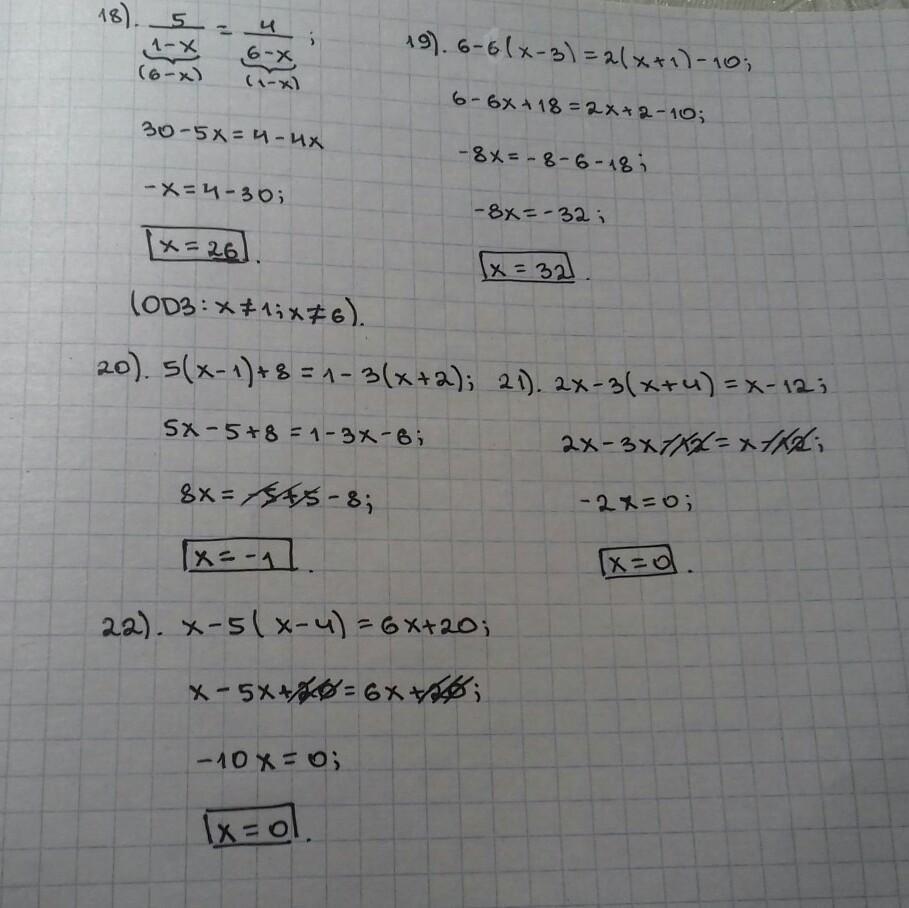 18). 5/(1-x) = 4/(6-x);
(6-x) (1-x)
30-5x=4-4x
-x=4-30;
x=26.
(ОДЗ: x≠1; x≠6).
19). 6-6(x-3)=2(x+1)-10;
6-6x+18=2x+2-10;
-8x=-8-6-18;
-8x=-32;
x=32.
20). 5(x-1)+8=1-3(x+2);
5x-5+8=1-3x-6;
8x=-5+5-8;
x=-1.
21). 2x-3(x+4)=x-12;
2x-3x-12=x-12;
-2x=0;
x=0.
22). x-5(x-4)=6x+20;
x-5x+20=6x+20;
-10x=0;
x=0.